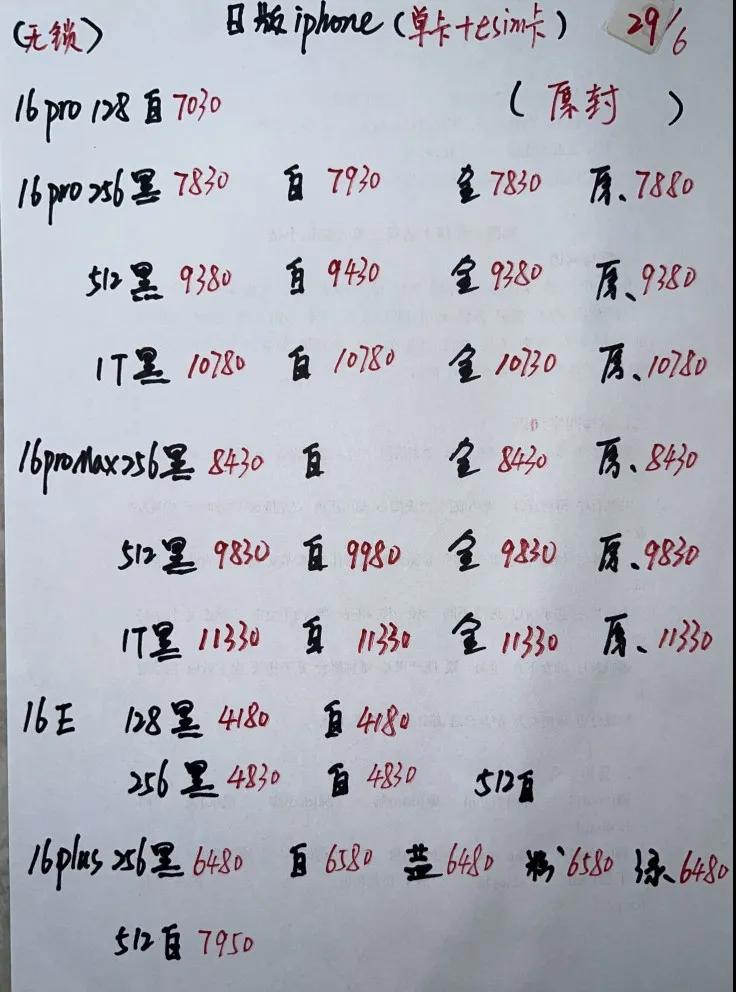 (无锁) 日版iphone(单卡+esim卡) 29/6
16pro 128 白 7030 (原封)
16pro 256 黑 7830 白 7930 金 7830 原、7880
512 黑 9380 白 9430 金 9380 原、9380
1T 黑 10780 白 10780 金 10730 原、10780
16proMax 256 黑 8430 白 金 8430 原、8430
512 黑 9830 白 9980 金 9830 原、9830
1T 黑 11330 白 11330 金 11330 原、11330
16E 128 黑 4180 白 4180
256 黑 4830 白 4830 512 白
16plus 256 黑 6480 白 6580 蓝 6480 粉 6580 绿、6480
512 白 7950